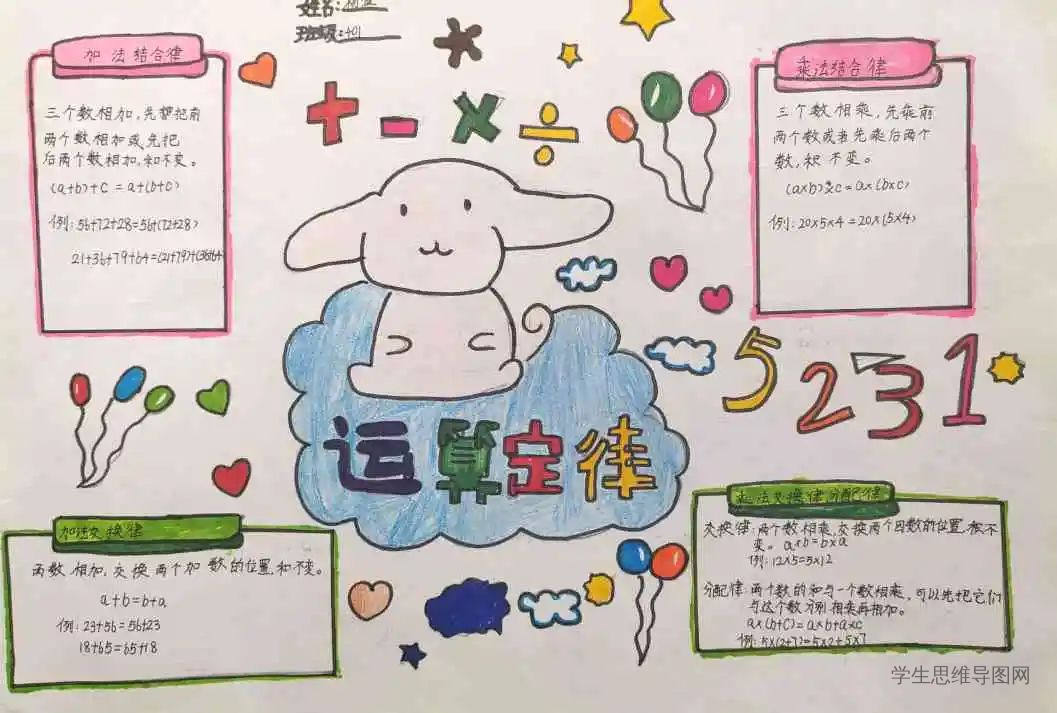 姓名:
班级:401
加法结合律
三个数相加,先把前
两个数相加或先把
后两个数相加,和不变。
(a+b)+c=a+(b+c)
例:56+72+28=56+(72+28)
21+36+79+64=(21+79)+(36+64
+ - × ÷
乘法结合律
三个数相乘,先乘前
两个数或者先乘后两个
数,积不变。
(a×b)×c=a×(b×c)
例:20×5×4=20×(5×4)
5 2 3 1
运算定律
加法交换律
两数相加,交换两个加数的位置,和不变。
a+b=b+a
例:23+56=56+23
18+65=65+18
乘法交换律分配律
交换律:两个数相乘,交换两个因数的位置,积不
变。a×b=b×a
例:12×5=5×12
分配律:两个数的和与一个数相乘,可以先把它们
与这个数分别相乘再相加。
a×(b+c)=a×b+a×c
例:5×(2+7)=5×2+5×7
学生思维导图网